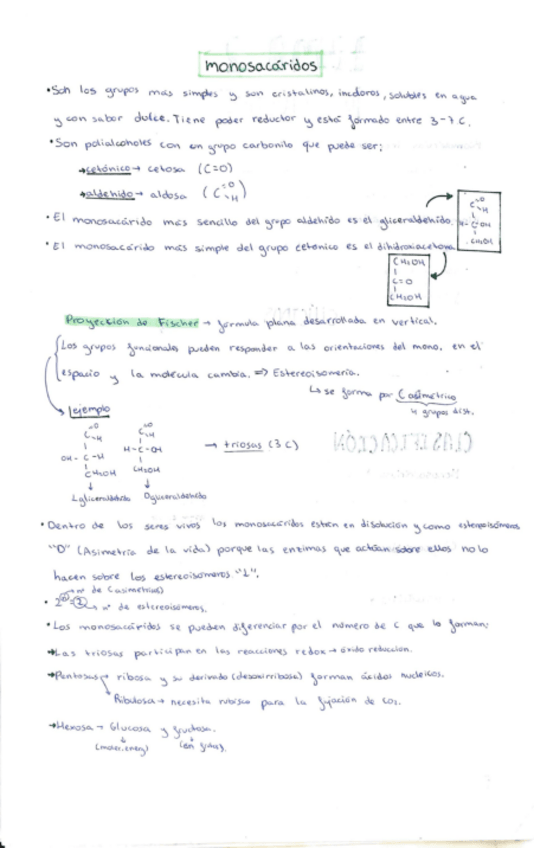 monosacáridos
•Son los grupos más simples y son cristalinos, inodoros, solubles en agua
y con sabor dulce. Tiene poder reductor y está formado entre 3-7 C.
•Son polialcoholes con un grupo carbonilo que puede ser:
→cetónico → cetosa (C=O)
→aldehido → aldosa (C =O -H)
• El monosacárido más sencillo del grupo aldehido es el gliceraldehido.
C =O -H
H-C-OH
CH2OH
• El monosacárido más simple del grupo cetónico es el dihidroxiacetona
CH2OH
C=O
CH2OH
Proyección de Fischer → formula plana desarrollada en vertical.
Los grupos funcionales pueden responder a las orientaciones del mono. en el
espacio y la molécula cambia. => Estereoisomería.
↳ se forma por C asimétrico
4 grupos dist.
ejemplo
C =O -H
OH-C-H
CH2OH
↓
Lgliceraldehido
C =O -H
H-C-OH
CH2OH
↓
Dgliceraldehido
→ triosas (3C)
CLASIFICACIÓN
•Dentro de los seres vivos los monosacáridos están en disolución y como estereoisómeros
"D" (Asimetría de la vida) porque las enzimas que actúan sobre ellos no lo
hacen sobre los estereoisómeros "L".
→ nº de C asimétricos
• 2 → nº de estereoisómeros.
•Los monosacáridos se pueden diferenciar por el número de C que lo forman:
→Las triosas participan en las reacciones redox → óxido reducción.
→Pentosas → ribosa y su derivado (desoxirribosa) forman ácidos nucleicos.
Ribulosa → necesita rubisco para la fijación de CO2.
→Hexosa → Glucosa y fructosa.
(molec. energ) (en frutas).